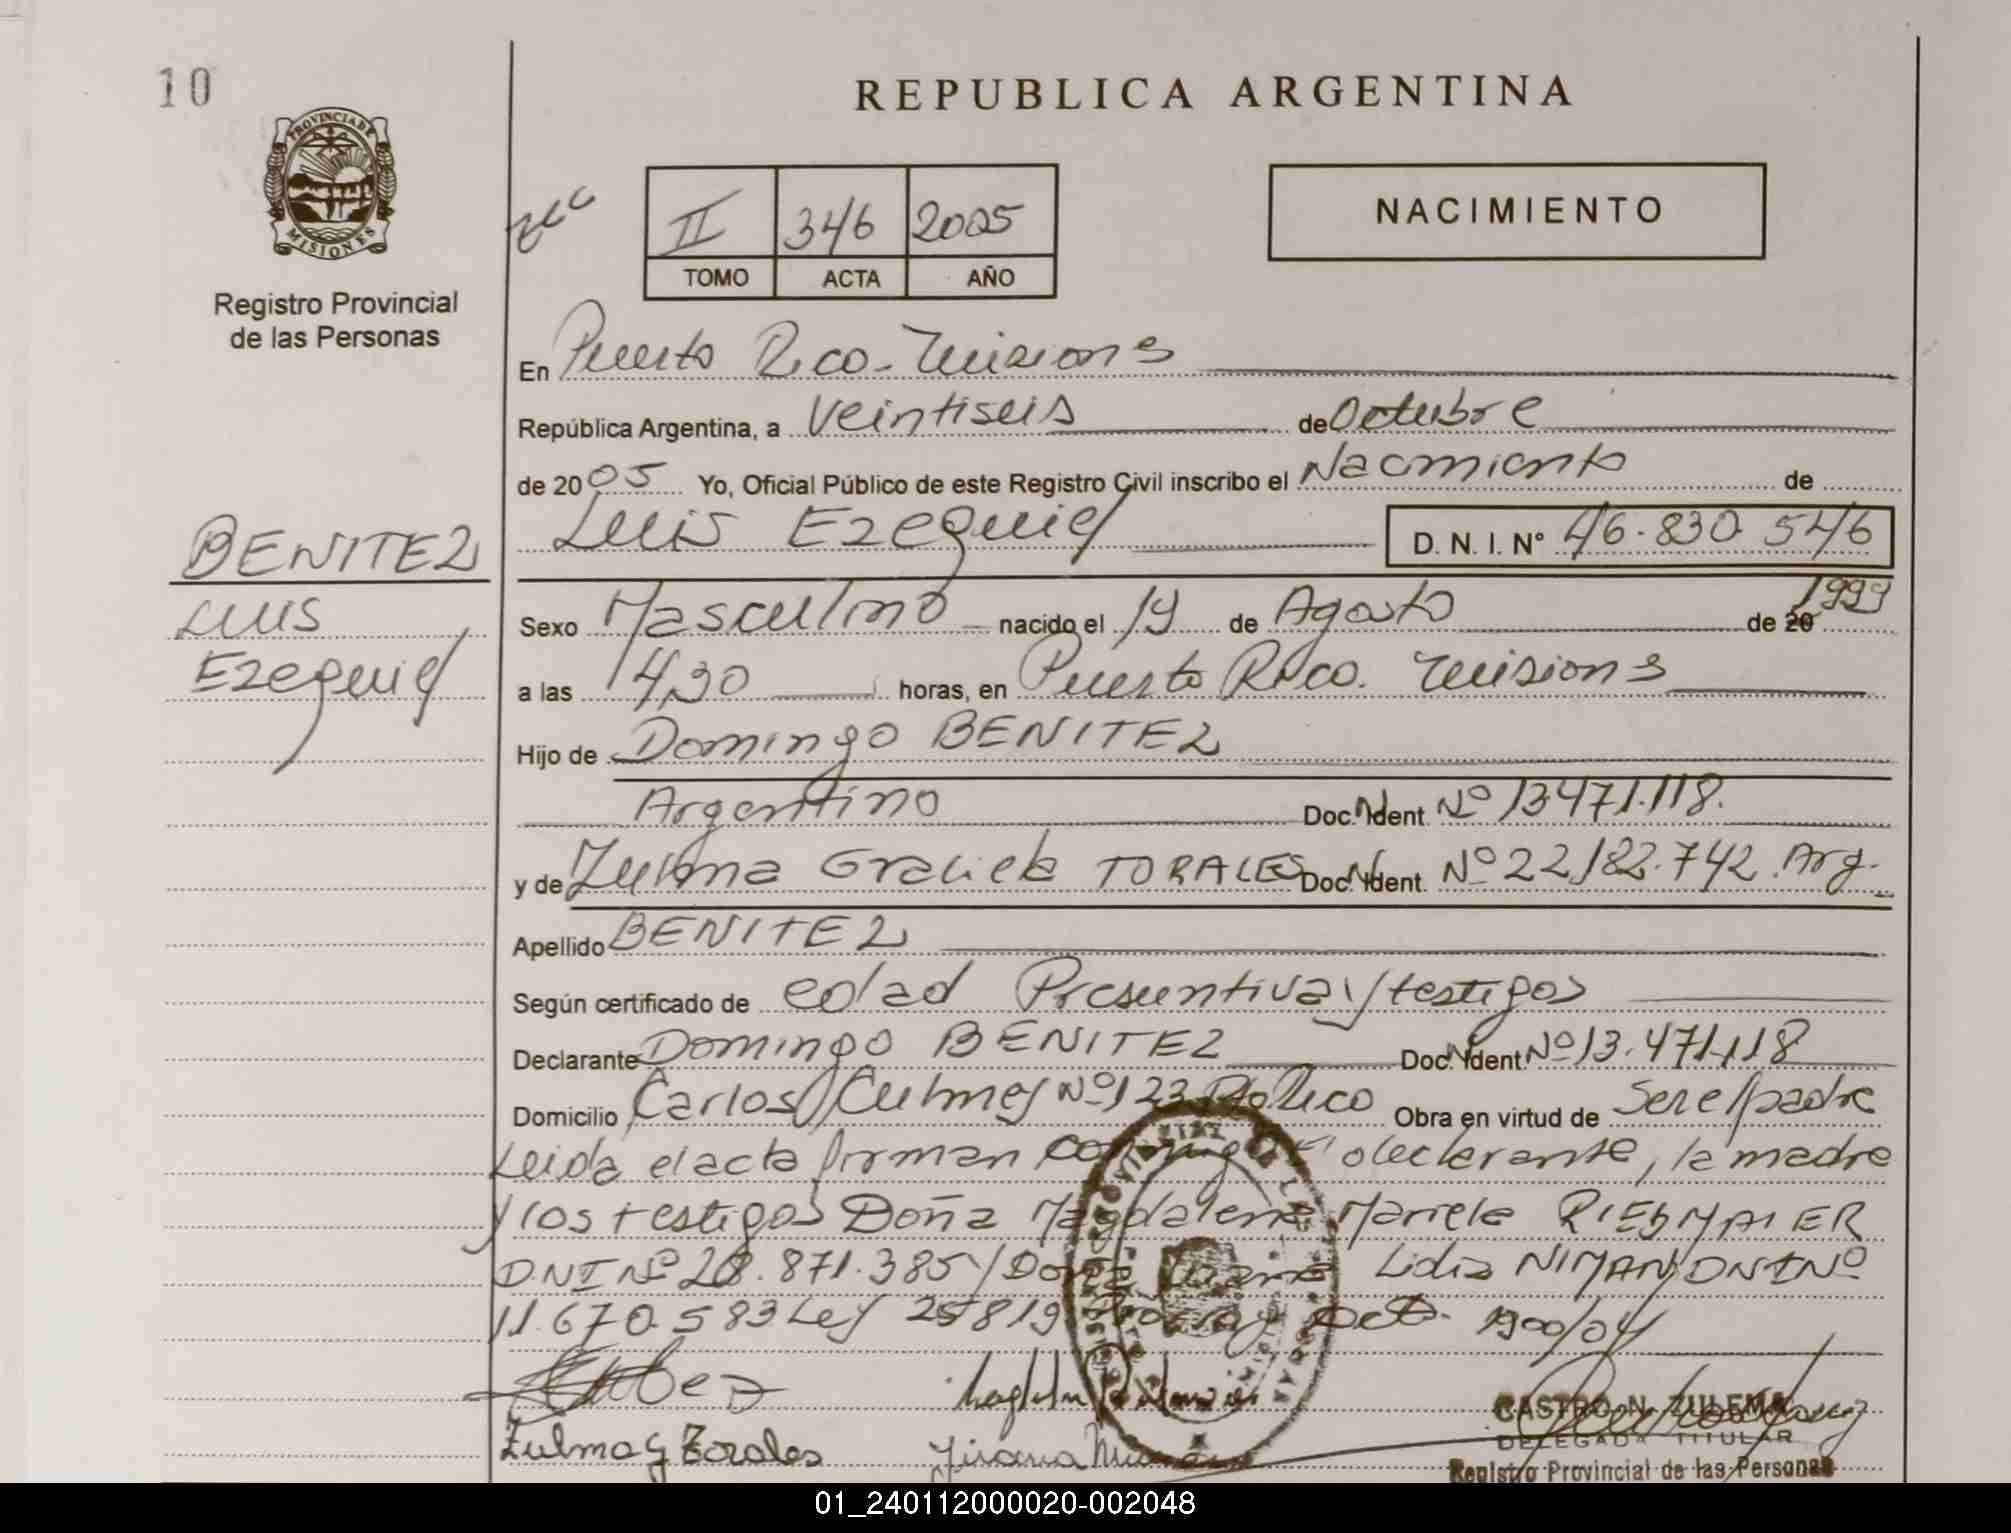 10
REPUBLICA ARGENTINA
PROVINCIA DE
MISIONES
II 346 2005
NACIMIENTO
TOMO ACTA AÑO
Registro Provincial
de las Personas
En Puerto Rico - Misiones
República Argentina, a Veintiseis de Octubre
de 2005 Yo, Oficial Público de este Registro Civil inscribo el Nacimiento de
Luis Ezequiel D. N. I. N° 46.830.546
BENITEZ
LUIS
Ezequiel
Sexo Masculino nacido el 19 de Agosto de 20 1999
a las 14,30 horas, en Puerto Rico. Misiones
Hijo de Domingo BENITEZ
Argentino Doc. Ident. Nº 13.471.118.
y de Zulma Graciela TORALES Doc. Ident. Nº 22.182.742 Arg.
Apellido BENITEZ
Según certificado de edad Presuntiva y testigos
Declarante Domingo BENITEZ Doc. Ident. Nº 13.471.118
Domicilio Carlos Culmey Nº 123 Pto Rico Obra en virtud de Ser el padre
Leida el acta firman conmigo el declarante, la madre
y los testigos Doña Magdalena Mariela RIEDMAIER
DNI Nº 28.871.385 y Doña Lidia NIMAN DNI Nº
11.670.583 Ley 25819 Dcto. 1900/04
Zulma G Torales
CASTRO N. ZULEMA
DELEGADA TITULAR
Registro Provincial de las Personas
01_240112000020-002048